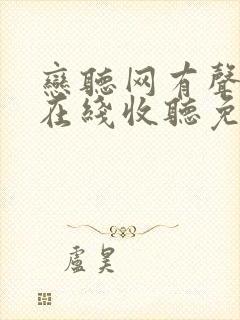 戀聽网有聲
在綫收聽免
盧昊